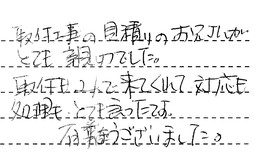 取付工事の見積りのお兄さんが
とても親切でした。
取付も2人で来てくれて対応も
処理もとても良かったです。
有難うございました。